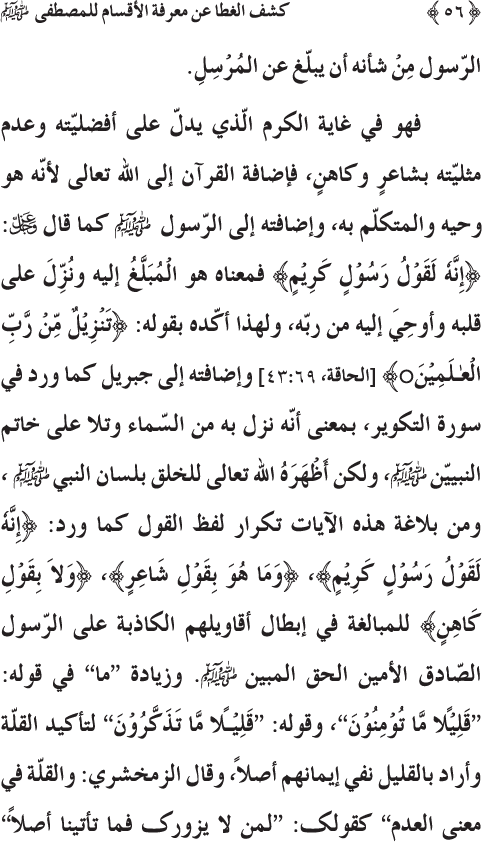 ﴿ ٥٦ ﴾ كشف الغطا عن معرفة الأقسام للمصطفى ﷺ
الرّسول مِنْ شأنه أن يبلّغ عن المُرْسِلِ.
فهو في غاية الكرم الّذي يدلّ على أفضليّته وعدم
مثليّته بشاعرٍ وكاهنٍ، فإضافة القرآن إلى الله تعالى لأنّه هو
وحيه والمتكلّم به، وإضافته إلى الرّسول ﷺ كما قال عزوجل:
﴿إِنَّهٗ لَقَوْلُ رَسُوْلٍ كَرِيْمٍ﴾ فمعناه هو الْمُبَلَّغُ إليه ونُزِّلَ على
قلبه وأوحِيَ إليه من ربّه، ولهذا أكّده بقوله: ﴿تَنْزِيْلٌ مِّنْ رَّبِّ
الْعٰلَمِيْنَ○﴾ [الحاقة، ٤٣:٦٩] وإضافته إلى جبريل كما ورد في
سورة التكوير، بمعنى أنّه نزل به من السّماء وتلا على خاتم
النبييّن ﷺ، ولكن أَظْهَرَهُ الله تعالى للخلق بلسان النبي ﷺ،
ومن بلاغة هذه الآيات تكرار لفظ القول كما ورد: ﴿إِنَّهٗ
لَقَوْلُ رَسُوْلٍ كَرِيْمٍ﴾، ﴿وَمَا هُوَ بِقَوْلِ شَاعِرٍ﴾، ﴿وَلاَ بِقَوْلِ
كَاهِنٍ﴾ للمبالغة في إبطال أقاويلهم الكاذبة على الرّسول
الصّادق الأمين الحق المبين ﷺ. وزيادة ”ما“ في قوله:
”قَلِيْلًا مَّا تُوْمِنُوْنَ“، وقوله: ”قَلِيْـلًا مَّا تَذَكَّرُوْنَ“ لتأكيد القلّة
وأراد بالقليل نفي إيمانهم أصلاً، وقال الزمخشري: والقلّة في
معنى العدم“ كقولك: ”لمن لا يزورك فما تأتينا أصلاً“